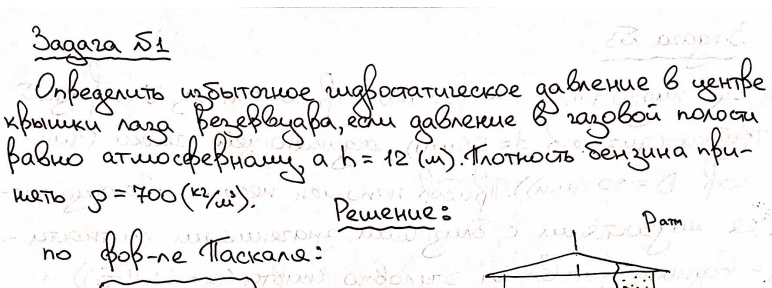 Задача №1
Определить избыточное гидростатическое давление в центре
крышки лаза резервуара, если давление в газовой полости
равно атмосферному, а h = 12 (м). Плотность бензина при-
нять ρ = 700 (кг/м³).
Решение:
Pатм
по фор-ле Паскаля: